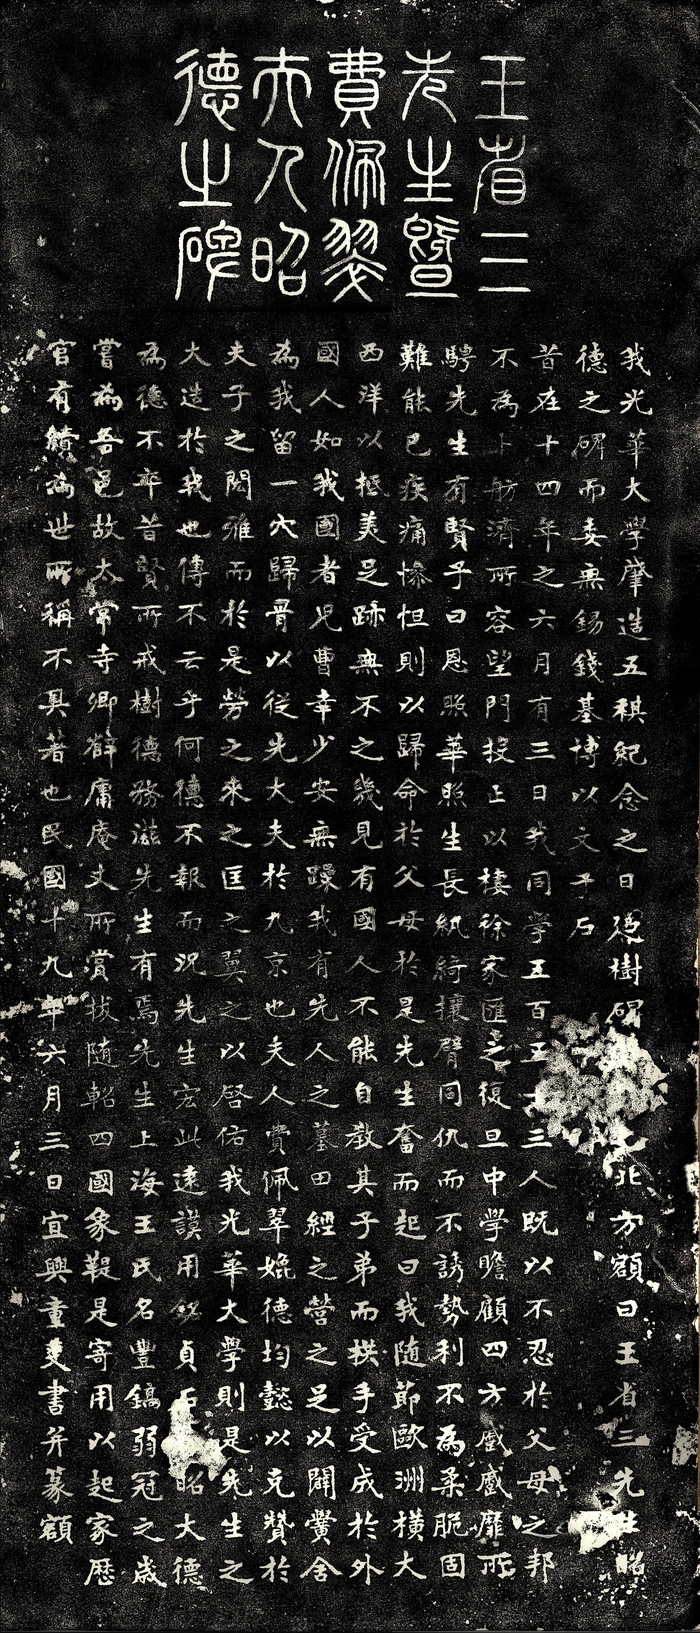 王省三
先生暨
費佩翠
夫人昭
德之碑
我光華大學肇造五祺紀念之日愻樹碑北方額曰王省三先生昭
德之碑而委無錫錢基博以文予石
昔在十四年之六月有三日我同學五百五十三人既以不忍於父母之邦
不為卜舫濟所容望門投止以棲徐家匯之復旦中學瞻顧四方慼慼靡所
騁先生有賢子曰恩照華照生長紈綺攘臂同仇而不誘勢利不為柔脆固
難能已疾痛慘怛則以歸命於父母於是先生奮而起曰我隨節歐洲橫大
西洋以抵美足跡無不之幾見有國人不能自教其子弟而拱手受成於外
國人如我國者兄曹幸少安無躁我有先人之墓田經之營之足以闢黌舍
為我留一穴歸骨以從先大夫於九京也夫人費佩翠媲德均懿以克贊於
夫子之閎雅而於是勞之來之匡之翼之以啓佑我光華大學則是先生之
大造於我也傳不云乎何德不報而況先生宏此遠謨用銘貞石昭大德
為德不卒昔賢所戒樹德務滋先生有焉先生上海王氏名豐鎬弱冠之歲
嘗為吾邑故太常寺卿薛庸庵丈所賞拔隨軺四國象鞮是寄用以起家歷
官有績為世所稱不具著也民國十九年六月三日宜興童斐書并篆額